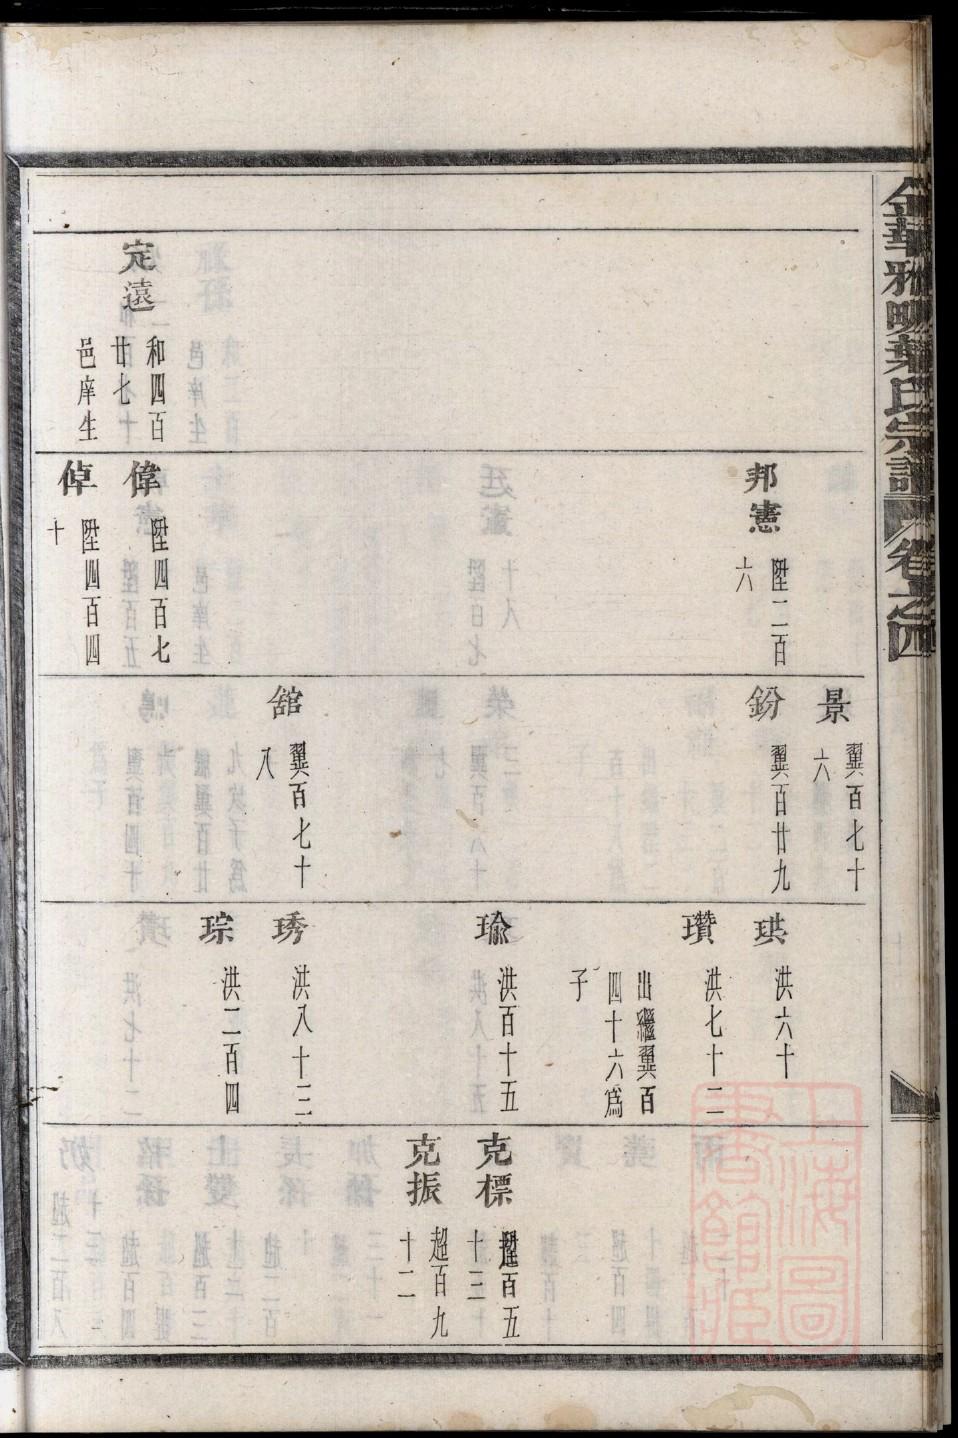 金華雅畈葉氏宗譜 卷之四
定遠
和四百
廿七
邑庠生
邦憲
陞二百
六
偉
陞四百七
倬
陞四百四
十
景
翼百七十
六
鈖
翼百廿九
舘
翼百七十
八
珙
洪六十
瓚
洪七十二
出繼翼百
四十六爲
子
瑜
洪百十五
琇
洪八十三
琮
洪二百四
克標
超百五
十三
克振
超百九
十二
上海圖
書館藏